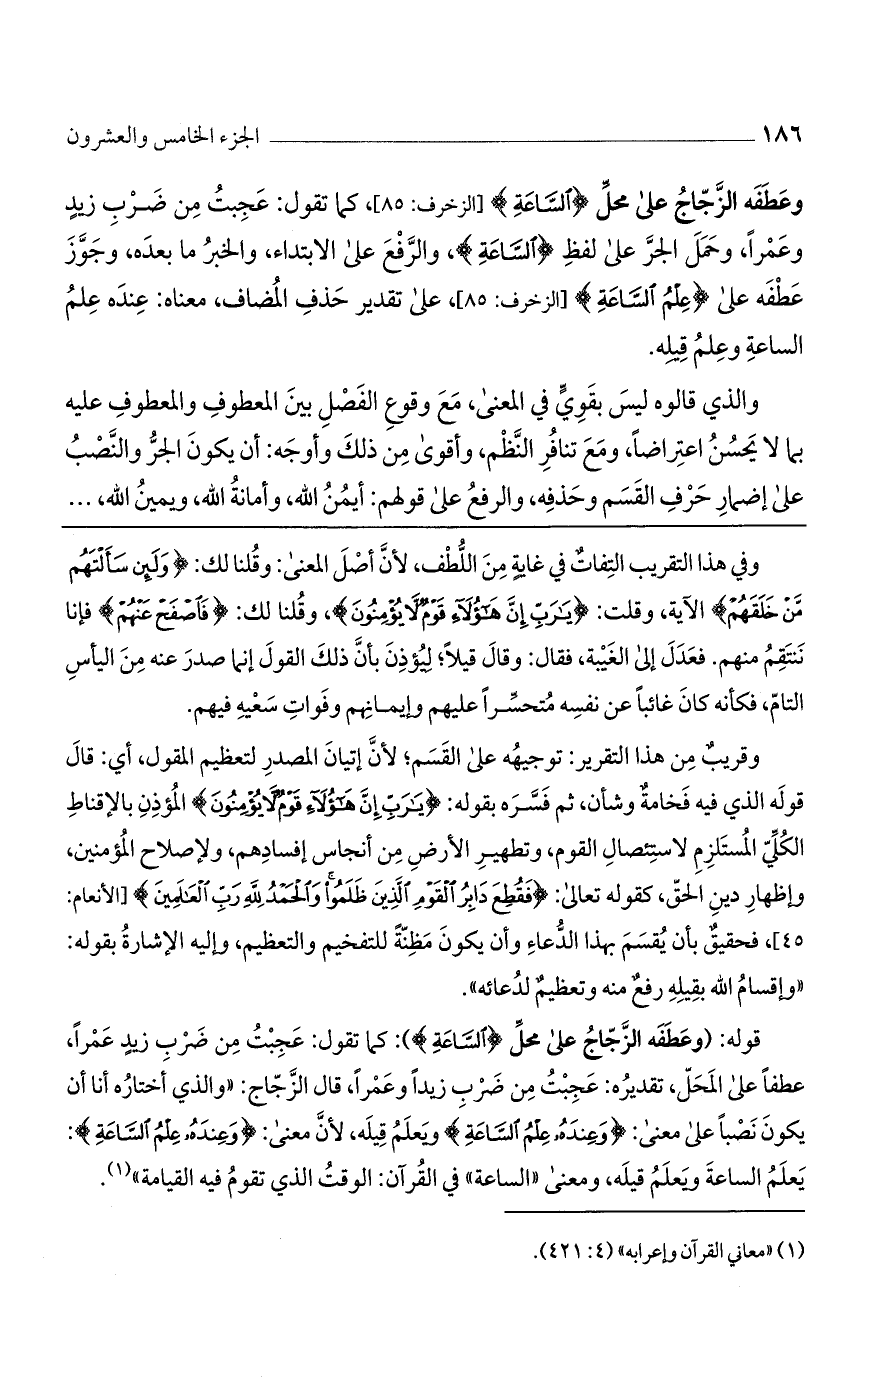 ١٨٦ الجزء الخامس والعشرون
وعَطَفَه الزَّجّاجُ علىٰ محلِّ ﴿ٱلسَّاعَةِ﴾ [الزخرف: ٨٥]، كما تقول: عَجِبتُ مِن ضَـرْبِ زيدٍ
وعَمْراً، وحَمَلَ الجرَّ علىٰ لفظِ ﴿ٱلسَّاعَةِ﴾، والرَّفْعَ علىٰ الابتداء، والخبرُ ما بعدَه، وجَوَّزَ
عَطْفَه علىٰ ﴿عِلْمُ ٱلسَّاعَةِ﴾ [الزخرف: ٨٥]، علىٰ تقدير حَذفِ المُضاف، معناه: عِندَه عِلمُ
الساعةِ وعِلمُ قِيلِه.
والذي قالوه ليسَ بقَوِيٍّ في المعنىٰ، مَعَ وقوعِ الفَصْلِ بينَ المعطوفِ والمعطوفِ عليه
بما لا يَحسُنُ اعتِراضاً، ومَعَ تنافُرِ النَّظْم، وأقوىٰ مِن ذلكَ وأوجَه: أن يكونَ الجرُّ والنَّصْبُ
علىٰ إضمارِ حَرْفِ القَسَم وحَذفِه، والرفعُ علىٰ قولهم: أيمُنُ الله، وأمانةُ الله، ويمينُ الله، ...
وفي هذا التقريب التِفاتٌ في غايةٍ مِنَ اللُّطْف، لأنَّ أصْلَ المعنىٰ: وقُلنا لك: ﴿وَلَئِن سَأَلْتَهُم
مَّنْ خَلَقَهُمْ﴾ الآية، وقلت: ﴿يَٰرَبِّ إِنَّ هَٰٓؤُلَآءِ قَوْمٌ لَّا يُؤْمِنُونَ﴾، وقُلنا لك: ﴿فَٱصْفَحْ عَنْهُمْ﴾ فإنا
نَنتَقِمُ منهم. فعَدَلَ إلىٰ الغَيْبة، فقال: وقالَ قيلاً؛ لِيُؤذِنَ بأنَّ ذلكَ القولَ إنما صدرَ عنه مِنَ اليأسِ
التامّ، فكأنه كانَ غائباً عن نفسِه مُتحسِّـراً عليهم وإيمـانِهم وفَواتِ سَعْيِهِ فيهم.
وقريبٌ مِن هذا التقرير: توجيهُه علىٰ القَسَم؛ لأنَّ إتيانَ المصدرِ لتعظيم المقول، أي: قالَ
قولَه الذي فيه فَخامةٌ وشأن، ثم فَسَّرَه بقوله: ﴿يَٰرَبِّ إِنَّ هَٰٓؤُلَآءِ قَوْمٌ لَّا يُؤْمِنُونَ﴾ المُؤذِنِ بالإقناطِ
الكُلِّيّ المُستَلزِمِ لاستِئصالِ القوم، وتطهيرِ الأرضِ مِن أنجاسِ إفسادِهم، ولإصلاح المُؤمنين،
وإظهارِ دينِ الحقّ، كقوله تعالىٰ: ﴿فَقُطِعَ دَابِرُ ٱلْقَوْمِ ٱلَّذِينَ ظَلَمُوا۟ ۚ وَٱلْحَمْدُ لِلَّهِ رَبِّ ٱلْعَٰلَمِينَ﴾ [الأنعام:
٤٥]، فحقيقٌ بأن يُقسَمَ بهذا الدُّعاءِ وأن يكونَ مَظِنّةً للتفخيم والتعظيم، وإليه الإشارةُ بقوله:
«وإقسامُ الله بقِيلِهِ رفعٌ منه وتعظيمٌ لدُعائه».
قوله: (وعَطَفَه الزَّجّاجُ علىٰ محلِّ ﴿ٱلسَّاعَةِ﴾): كما تقول: عَجِبْتُ مِن ضَرْبِ زيدٍ عَمْراً،
عطفاً علىٰ المَحَلّ، تقديرُه: عَجِبْتُ مِن ضَرْبِ زيداً وعَمْراً، قال الزَّجّاج: «والذي أختارُه أنا أن
يكونَ نَصْباً علىٰ معنىٰ: ﴿وَعِندَهُۥ عِلْمُ ٱلسَّاعَةِ﴾ ويَعلَمُ قِيلَه، لأنَّ معنىٰ: ﴿وَعِندَهُۥ عِلْمُ ٱلسَّاعَةِ﴾:
يَعلَمُ الساعةَ ويَعلَمُ قيلَه، ومعنىٰ «الساعة» في القُرآن: الوقتُ الذي تقومُ فيه القيامة»(١).
(١) «معاني القرآن وإعرابه» (٤: ٤٢١).